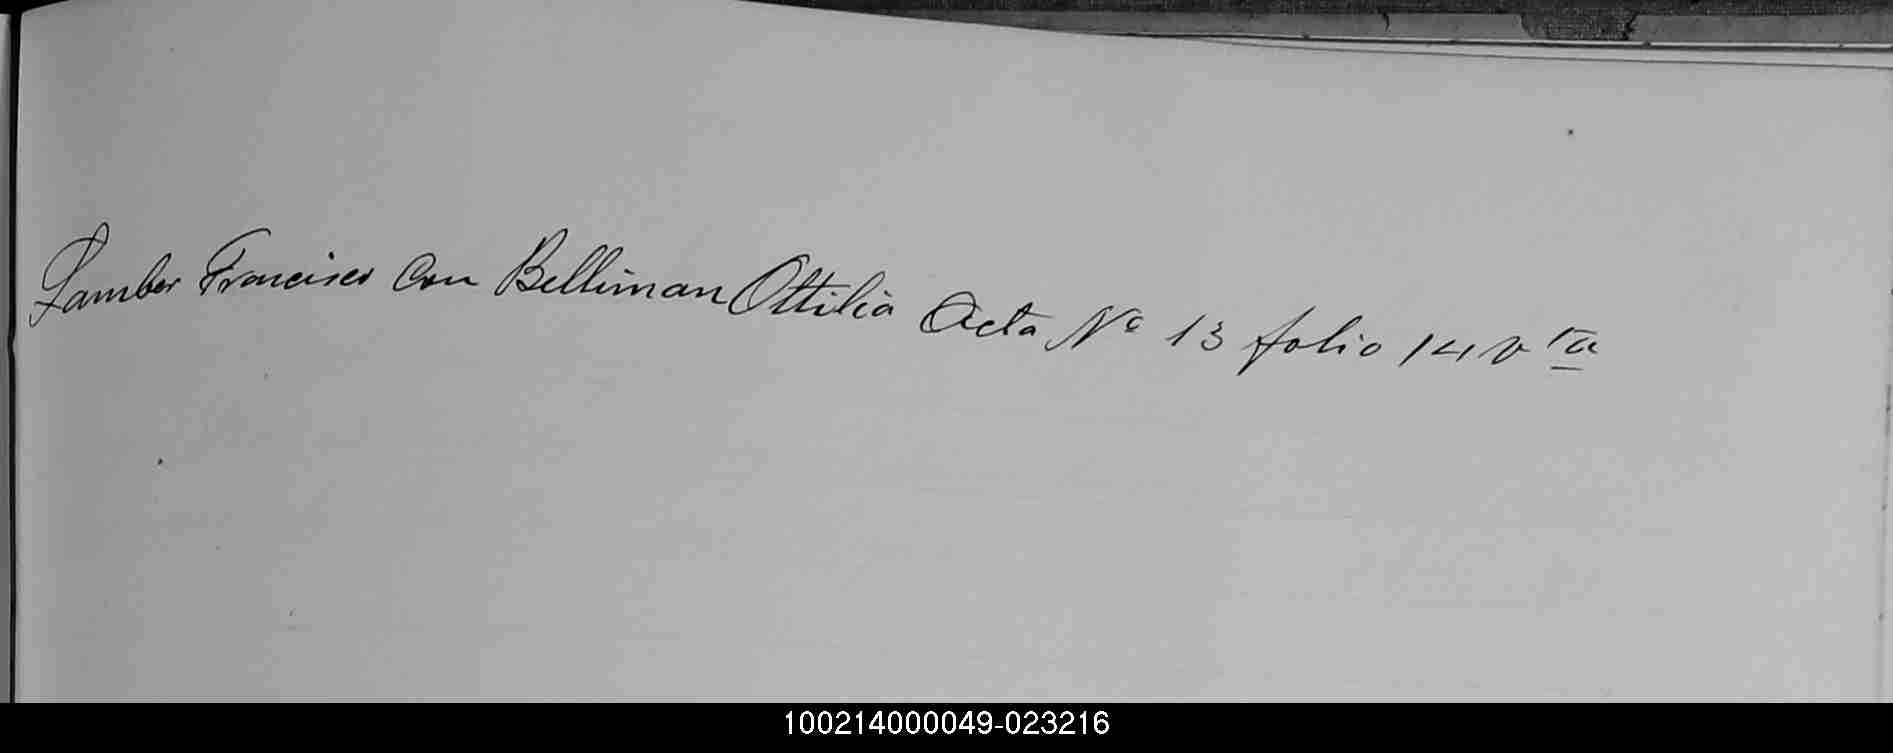 Lamber Francisco con Belliman Ottilia Acta Nº 13 folio 14 vta
100214000049-023216